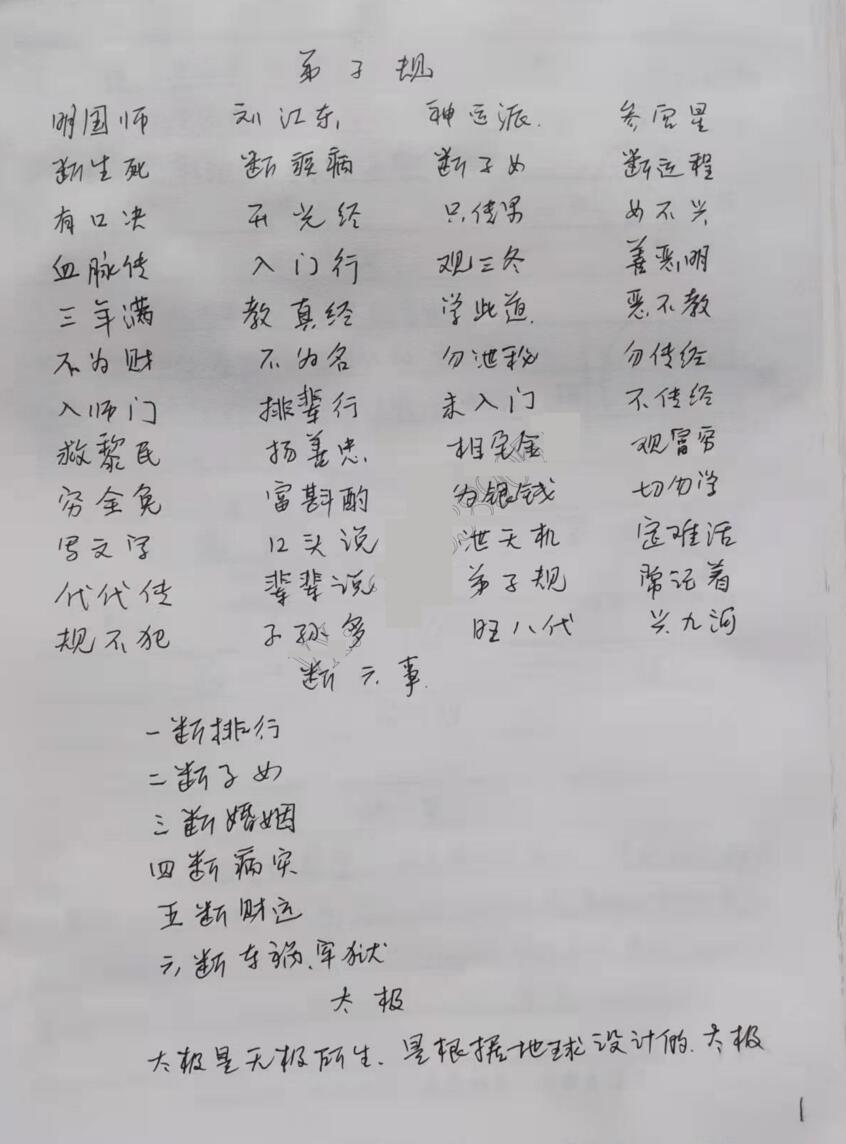 弟子规
明国师 刘江东 神运派. 参宫星
断生死 断疾病 断子女 断运程
有口决 开光经 只传男 女不兴
血脉传 入门行 观三冬 善恶明
三年满 教真经 学此道. 恶不教
不为财 不为名 勿泄秘 勿传经
入师门 排辈行 未入门 不传经
救黎民 扬善忠. 相全金 观富穷
穷全免 富斟酌 为银钱 切勿学
写文字 口头说 泄天机 定难活
代代传 辈辈说 弟子规 常记着
规不犯 子孙多 旺八代 兴九河
断六事.
一断排行
二断子女
三断婚姻
四断病灾
五断财运
六断车祸、牢狱
太极
太极是无极所生、是根据地球设计的.太极
1